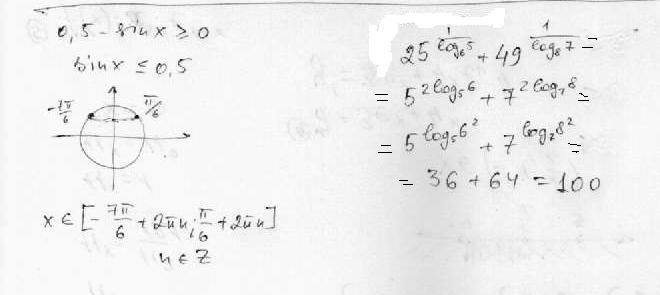 0,5 - sinx ≥ 0
sinx ≤ 0,5
-7π/6 π/6
x ∈ [-7π/6 + 2πn; π/6 + 2πn]
n ∈ Z
25^(1/log₆5) + 49^(1/log₈7) =
= 5^(2log₅6) + 7^(2log₇8) =
= 5^(log₅6²) + 7^(log₇8²) =
= 36 + 64 = 100